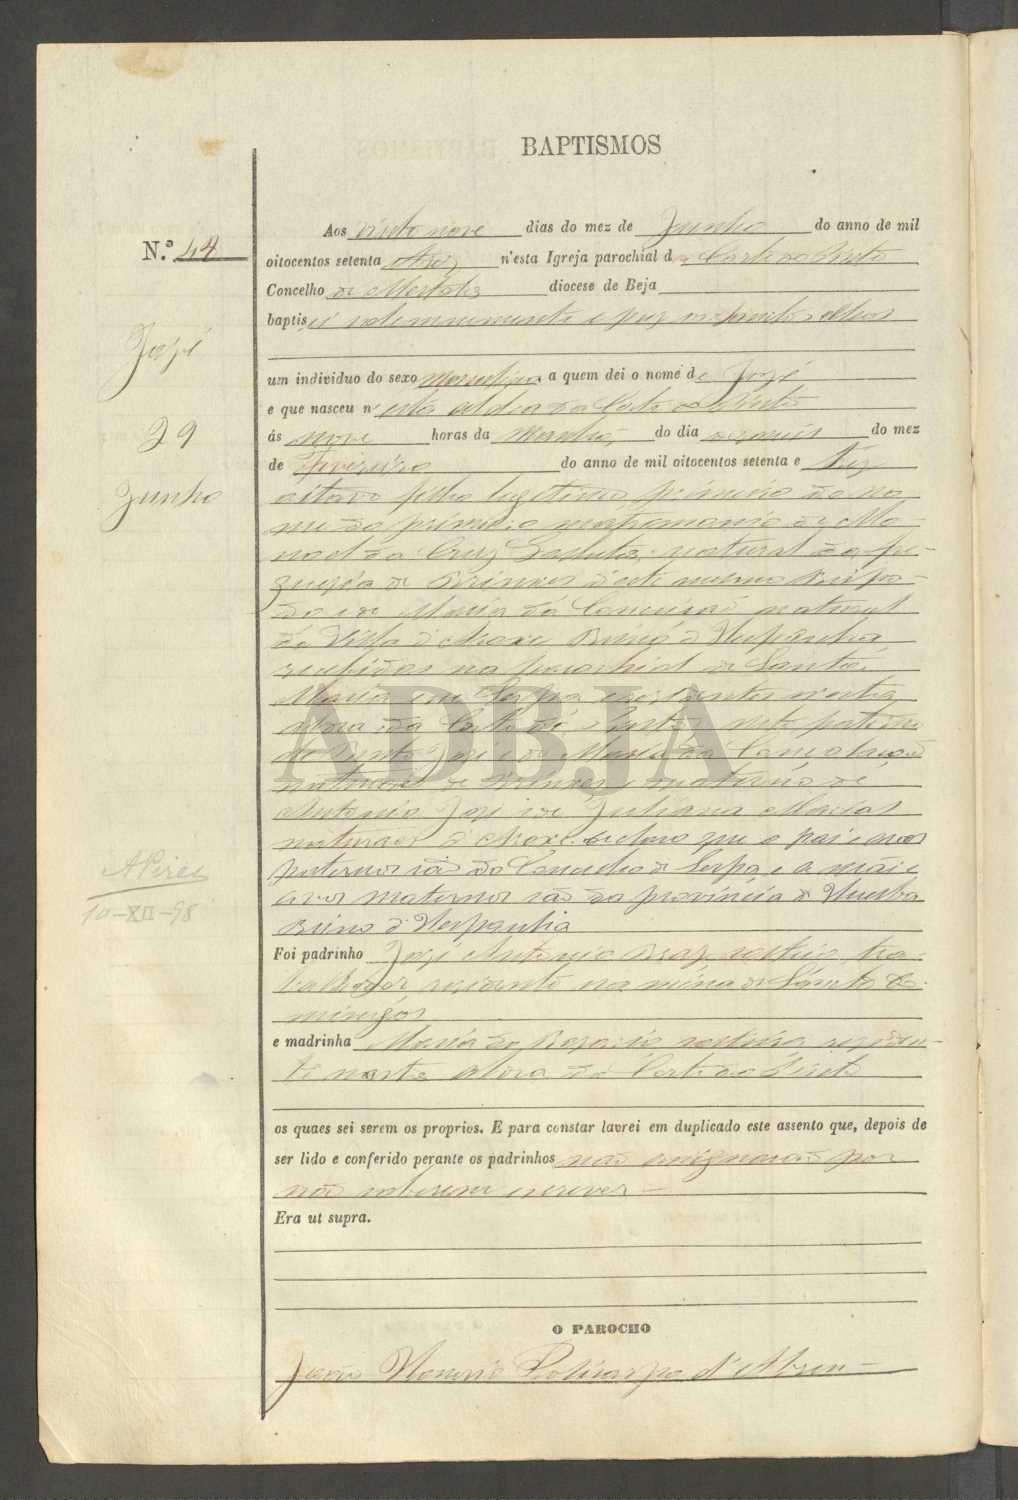 BAPTISMOS
N.º 44
José
29
Junho
Aos vinte nove dias do mez de Junho do anno de mil
oitocentos setenta tres n'esta Igreja parochial da Corte do Pinto
Concelho de Mertola diocese de Beja
baptisei solemnemente e puz os santos oleos
um individuo do sexo masculino a quem dei o nome de José
e que nasceu n'esta aldea da Corte do Pinto
ás nove horas da manhã do dia do mez
de Fevereiro do anno de mil oitocentos setenta e tres
oitavo filho legitimo, primeiro do no-
me do primeiro matrimonio de Ma-
noel da Cruz natural da fre-
guezia de Brinxes d'este mesmo Bispa-
do e de Maria da Conceição natural
da Villa d'Aroxe Reino d'Hespanha
recebidos na parochial de Santa
Maria em Serpa, n'esta
aldea da Corte do Pinto, neto paterno
de Bento José e de Maria da Consolação
naturaes de Brinxes, e materno de
Antonio José e de Juliana Macias
naturaes d'Aroxe declaro que o pai e avós
paternos são do Concelho de Serpa e a mãi e
avós maternos são da provincia d'Huelba
Reino d'Hespanha
Foi padrinho José Antonio Braz solteiro tra-
balhador residente na mina de São Do-
mingos
e madrinha Maria do Rozario solteira residen-
te nesta aldea da Corte do Pinto
os quaes sei serem os proprios. E para constar lavrei em duplicado este assento que, depois de
ser lido e conferido perante os padrinhos não assignarão por
não saberem escrever
Era ut supra.
O PAROCHO
João Policarpo d'Abreu
APires
10-XII-98
ADBJA